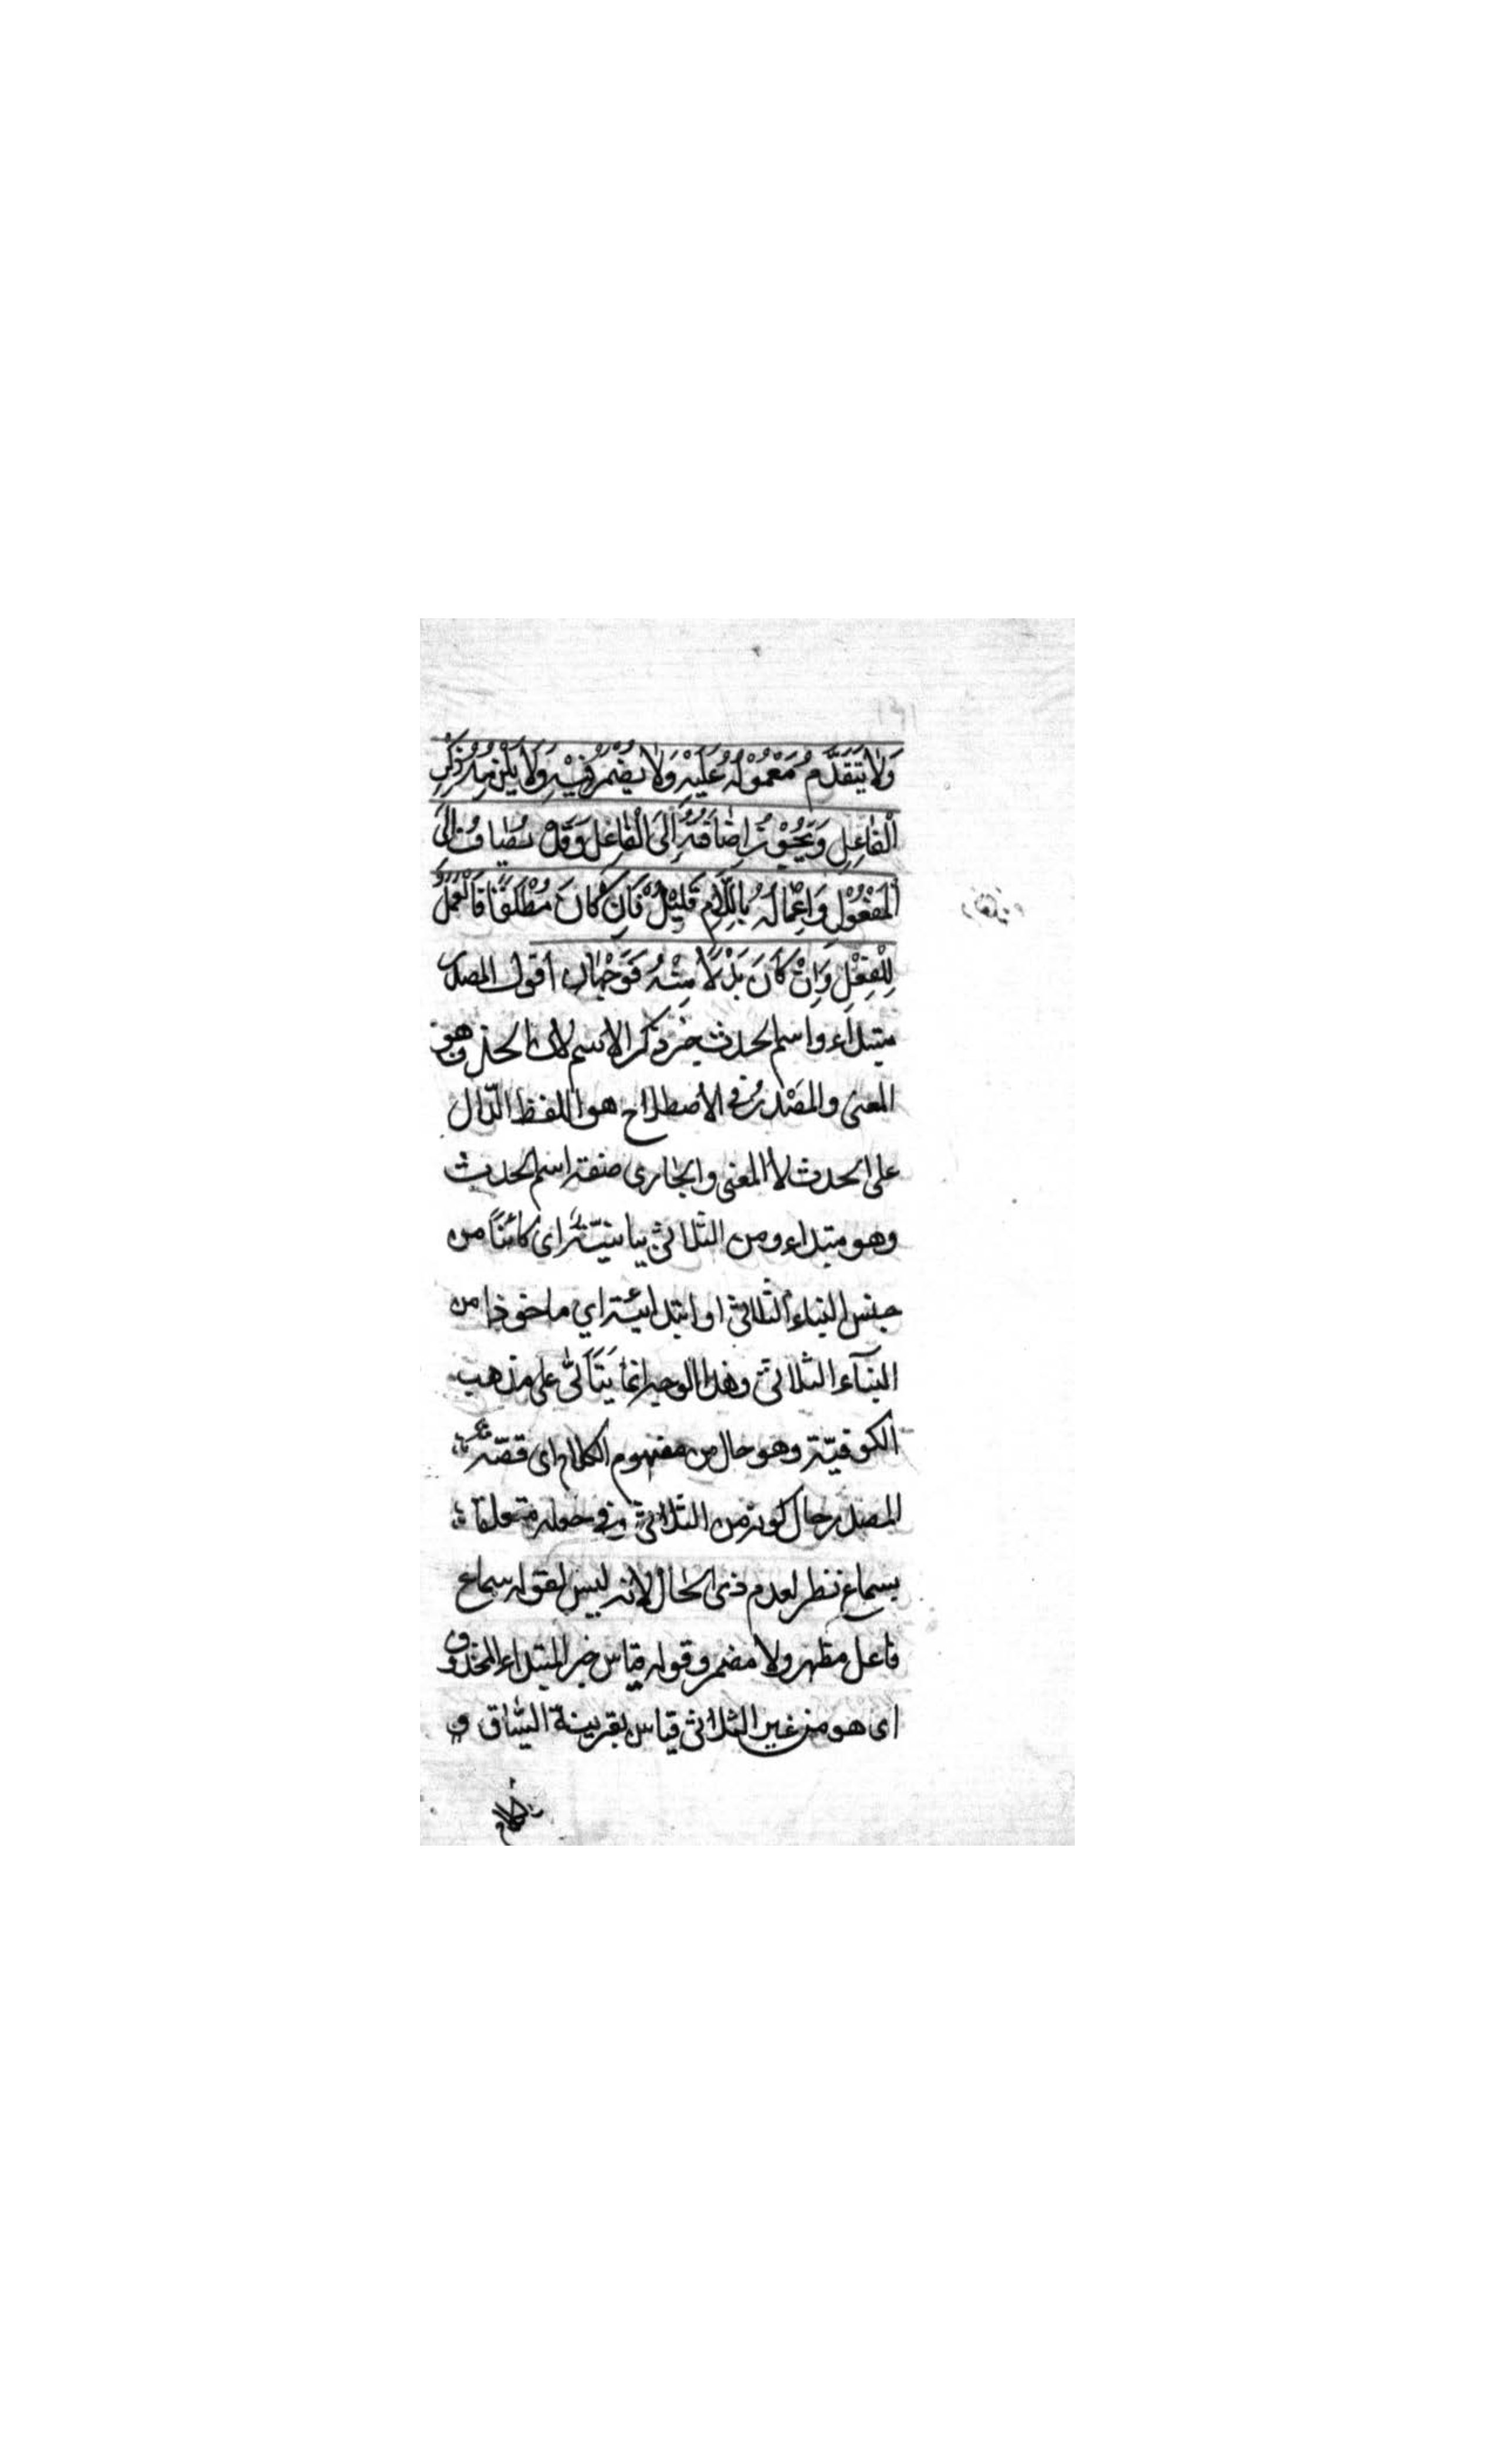 وَلَا يَتَقَدَّمُ مَعْمُوْلُهُ عَلَيْهِ وَلَا يُضْمَرُ فِيْهِ وَلَا يَلْزَمُ ذِكْرُ
الْفَاعِلِ وَيَجُوْزُ اِضَافَتُهُ اِلَى الْفَاعِلِ وَقَدْ يُضَافُ اِلَى
الْمَفْعُوْلِ وَاِعْمَالُهُ بِاللَّامِ قَلِيْلٌ فَاِنْ كَانَ مُطْلَقًا فَالْعَمَلُ
لِلْفِعْلِ وَاِنْ كَانَ بَدَلًا مِنْهُ فَوَجْهَانِ أقول المصدر
مبتداء واسم الحدث خبره ذكر الاسم لان الحدث هو
المعنى والمَصْدَرُ في الاصطلاح هو اللفظ الدّال
على الحدث لا المعنى والجارى صفة اسم الحدث
وهو مبتداء ومن الثلاثي بيانيّة اى كائنًا من
جنس البناء الثلاثي او ابتدائية اي ماخوذا من
البنآء الثلاثي وهذا الوجه انما يَتَأَتّى على مذهب
الكوفيّة وهو حال من مفهوم الكلام اى قصّة
المصدر حال كونه من الثلاثي وفي جعله متعلقا
بسماع نظر لعدم ذى الحال لانه ليس لقوله سماع
فاعل مظهر ولا مضمر وقوله قياس خبر المبتداء المحذوف
اى هو من غير الثلاثي قياس بقرينة السّياق و